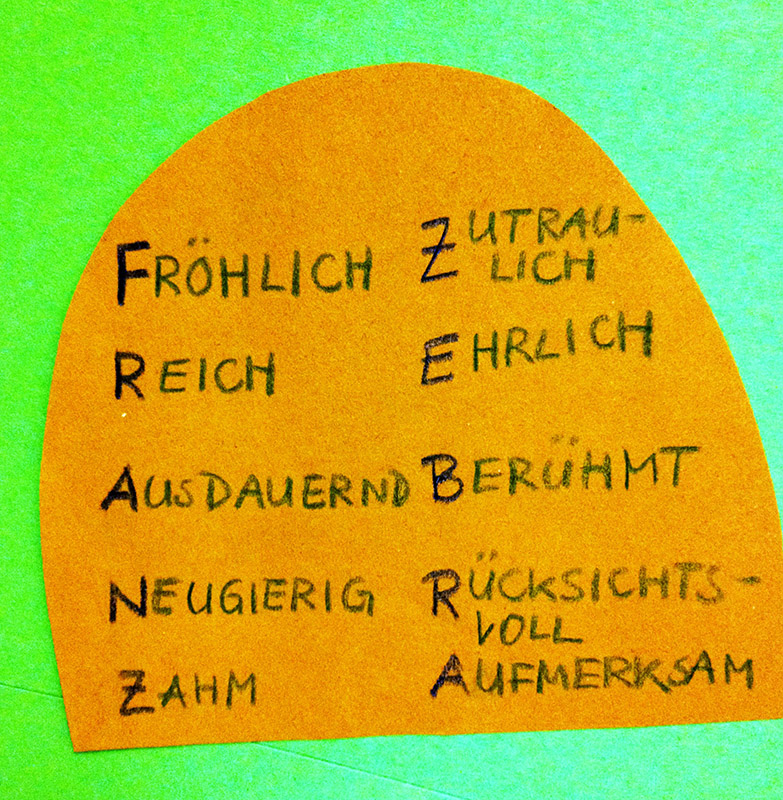 FRÖHLICH
REICH
AUSDAUERND
NEUGIERIG
ZAHM
ZUTRAU-
LICH
EHRLICH
BERÜHMT
RÜCKSICHTS-
VOLL
AUFMERKSAM